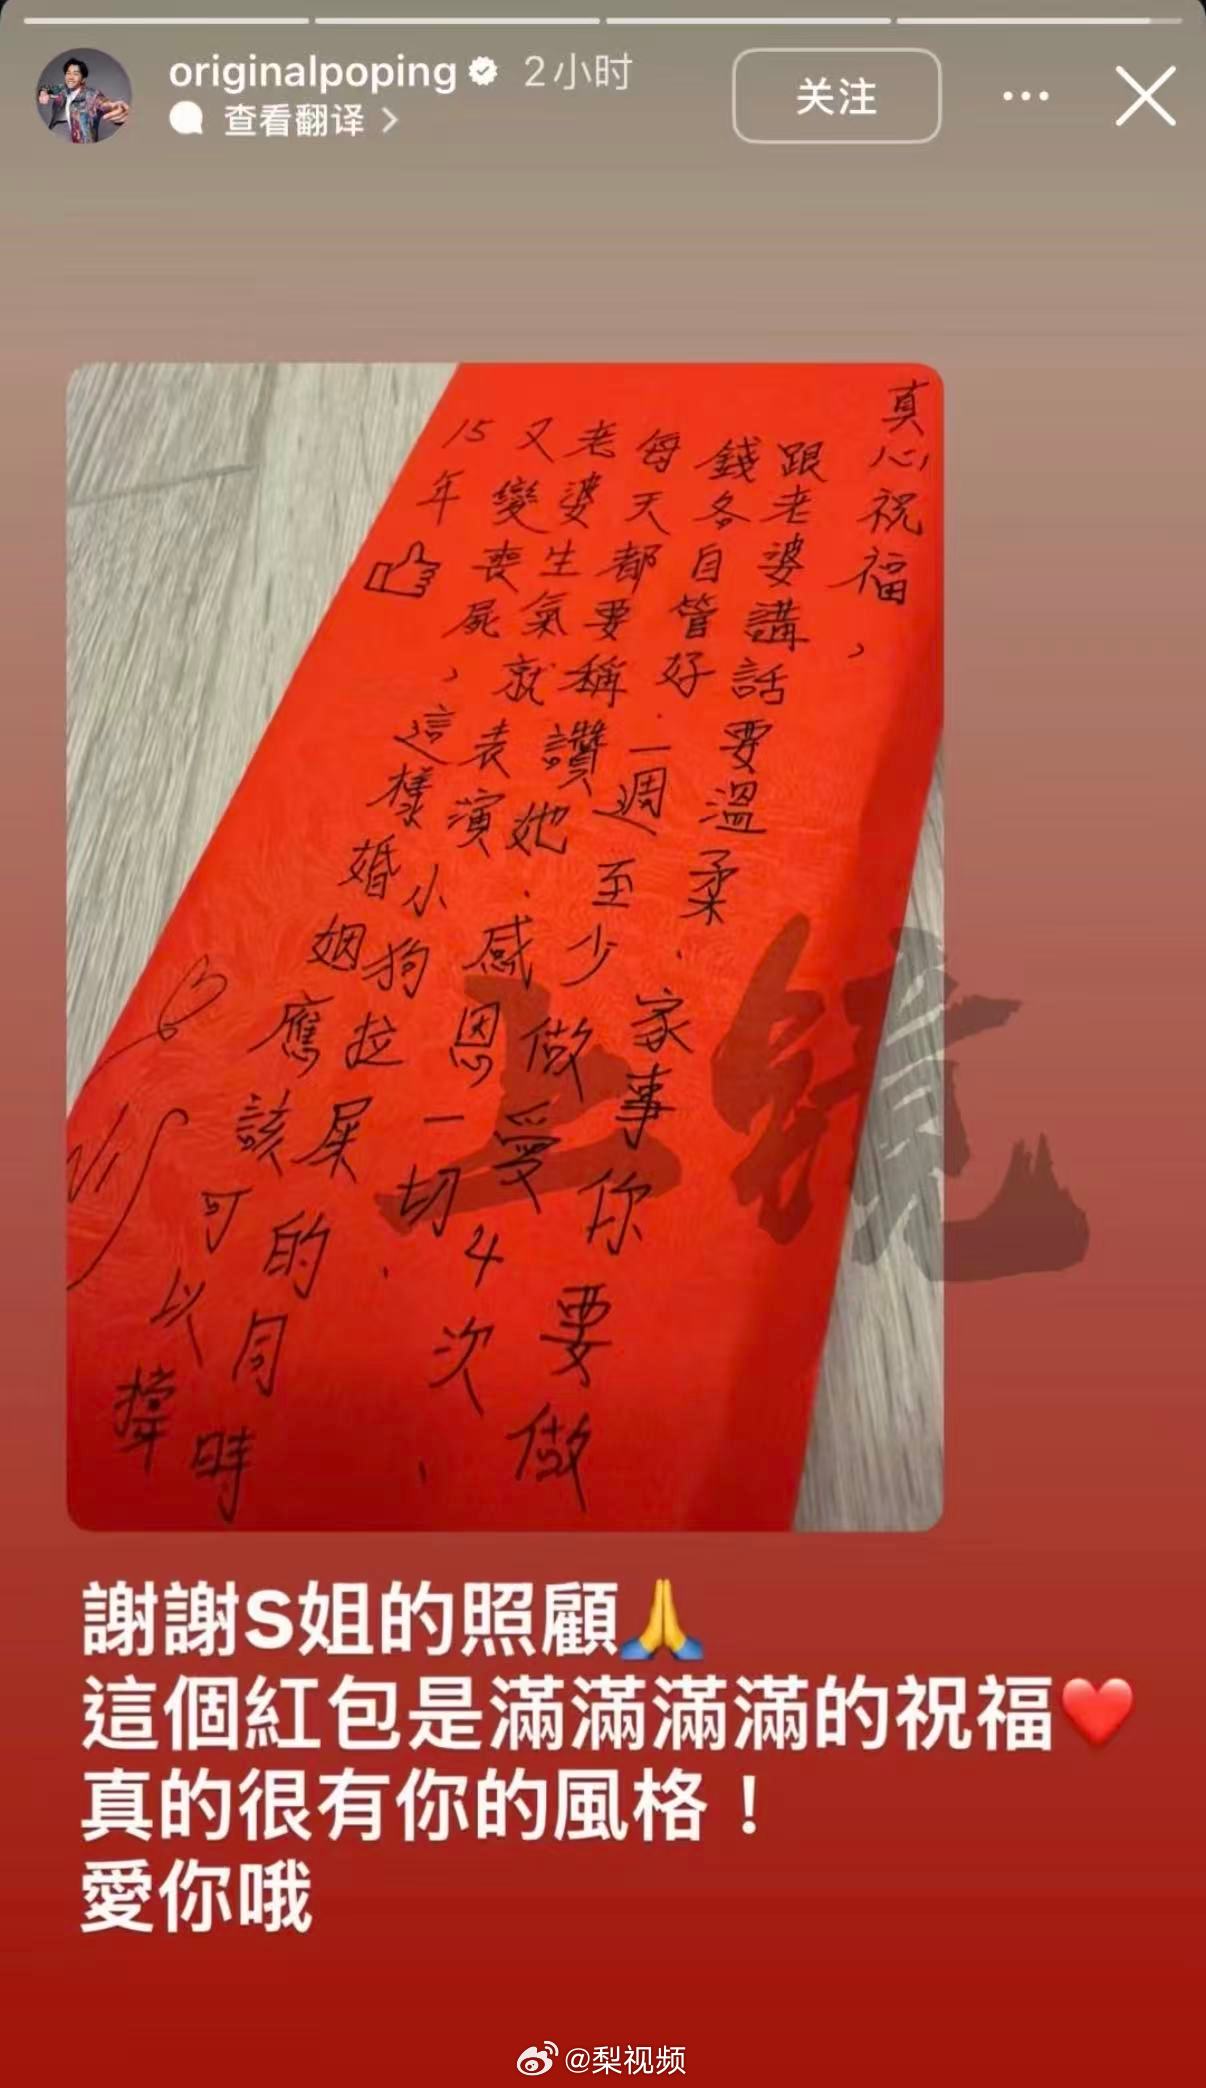 originalpoping 2小时
查看翻译
关注
真心祝福，
跟老婆講話要溫柔、家事你要做
錢各自管好．一週至少做愛4次、
每天都要稱讚她．感恩一切、
老婆生氣就表演小狗拉屎的同時
又變喪屍，這樣婚姻應該可以撐
15年
謝謝S姐的照顧🙏
這個紅包是滿滿滿滿的祝福❤️
真的很有你的風格！
愛你哦
@梨视频